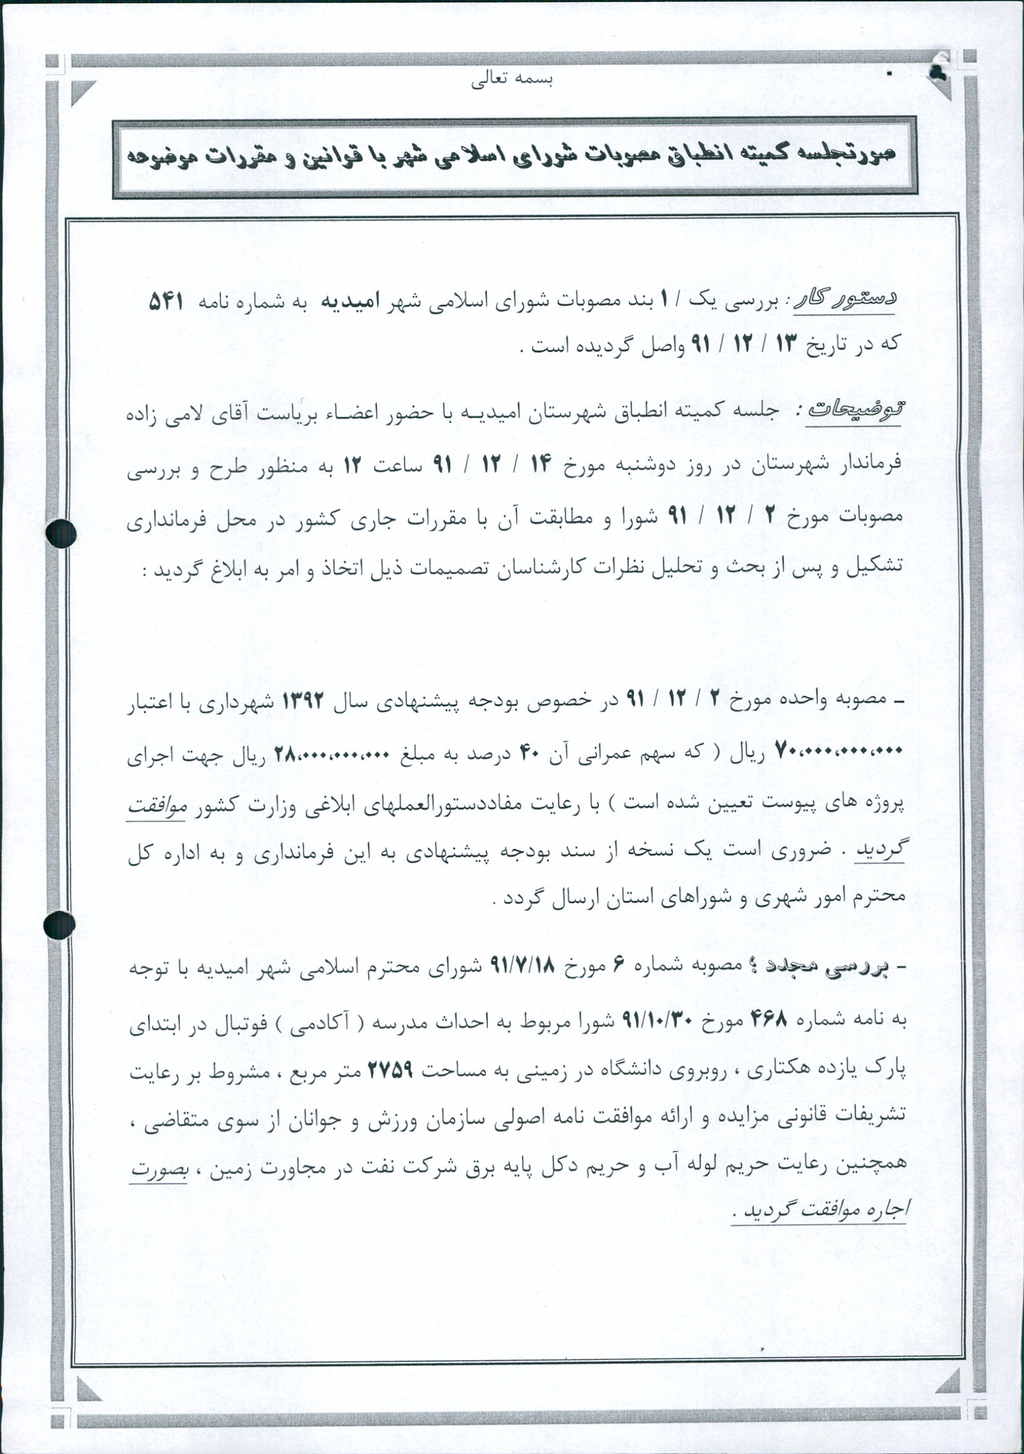 بسمه تعالی
صورتجلسه کمیته انطباق مصوبات شورای اسلامی شهر با قوانین و مقررات موضوعه
دستور کار : بررسی یک / ۱ بند مصوبات شورای اسلامی شهر امیدیه به شماره نامه ۵۴۱
که در تاریخ ۱۳ / ۱۲ / ۹۱ واصل گردیده است .
توضیحات : جلسه کمیته انطباق شهرستان امیدیـه با حضور اعضـاء بریاست آقای لامی زاده
فرماندار شهرستان در روز دوشنبه مورخ ۱۴ / ۱۲ / ۹۱ ساعت ۱۲ به منظور طرح و بررسی
مصوبات مورخ ۲ / ۱۲ / ۹۱ شورا و مطابقت آن با مقررات جاری کشور در محل فرمانداری
تشکیل و پس از بحث و تحلیل نظرات کارشناسان تصمیمات ذیل اتخاذ و امر به ابلاغ گردید :
ـ مصوبه واحده مورخ ۲ / ۱۲ / ۹۱ در خصوص بودجه پیشنهادی سال ۱۳۹۲ شهرداری با اعتبار
۷۰،۰۰۰،۰۰۰،۰۰۰ ریال ( که سهم عمرانی آن ۴۰ درصد به مبلغ ۲۸،۰۰۰،۰۰۰،۰۰۰ ریال جهت اجرای
پروژه های پیوست تعیین شده است ) با رعایت مفاددستورالعملهای ابلاغی وزارت کشور موافقت
گردید . ضروری است یک نسخه از سند بودجه پیشنهادی به این فرمانداری و به اداره کل
محترم امور شهری و شوراهای استان ارسال گردد .
- بررسی مجدد ؛ مصوبه شماره ۶ مورخ ۹۱/۷/۱۸ شورای محترم اسلامی شهر امیدیه با توجه
به نامه شماره ۴۶۸ مورخ ۹۱/۱۰/۳۰ شورا مربوط به احداث مدرسه ( آکادمی ) فوتبال در ابتدای
پارک یازده هکتاری ، روبروی دانشگاه در زمینی به مساحت ۲۷۵۹ متر مربع ، مشروط بر رعایت
تشریفات قانونی مزایده و ارائه موافقت نامه اصولی سازمان ورزش و جوانان از سوی متقاضی ،
همچنین رعایت حریم لوله آب و حریم دکل پایه برق شرکت نفت در مجاورت زمین ، بصورت
اجاره موافقت گردید .